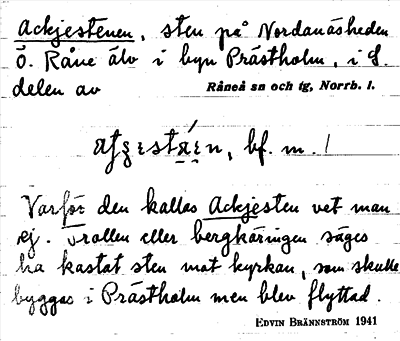 Ackjestenen, sten på Nordanåsheden
ö. Råne älv i byn Prästholm, i S.
delen av Råneå sn och tg, Norrb. l.
bf. m.
Varför den kallas Ackjesten vet man
ej. Trollen eller bergkäringen säges
ha kastat sten mot kyrkan, som skulle
byggas i Prästholm men blev flyttad.
EDVIN BRÄNNSTRÖM 1941